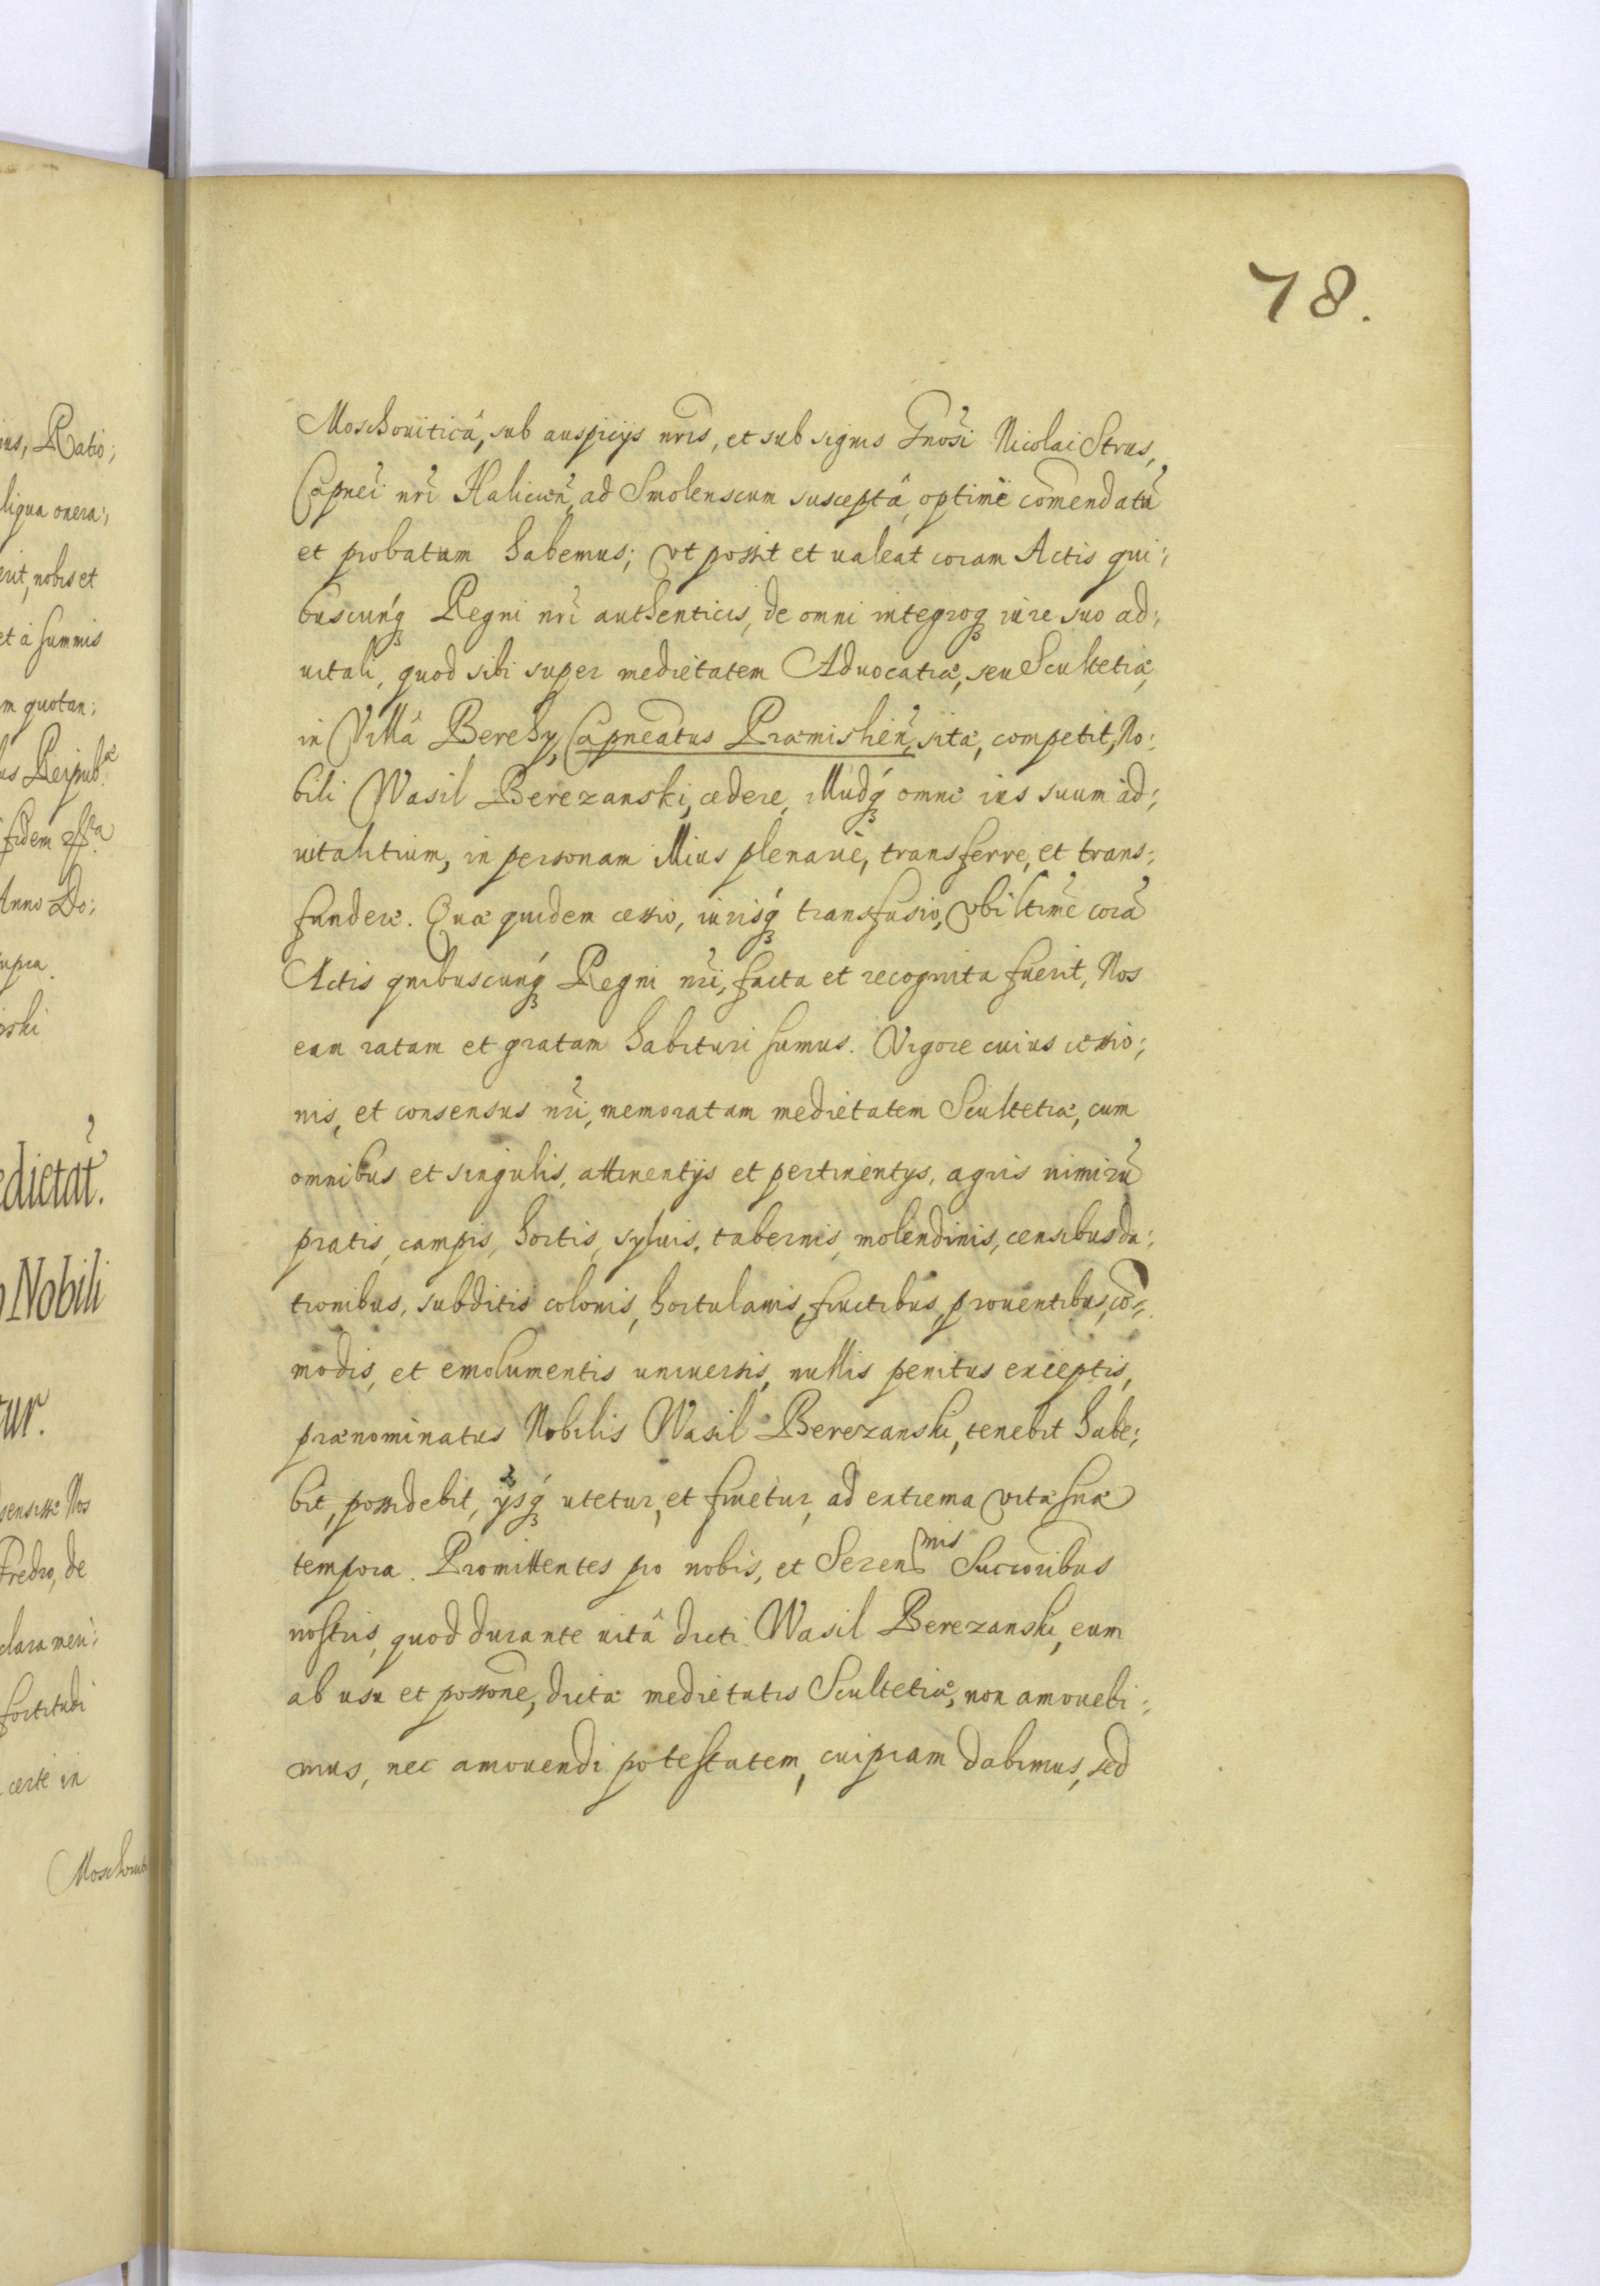 78.
Moschouiticâ, sub auspicÿs nrĩs, et sub signis Gnõsi Nicolai Strus,
Capnẽi nrĩ Haliciẽn, ad Smolenscum susceptâ, optimè com̃endatũ
et probatum habemus; Vt possit et ualeat coram Actis qui;
buscunq́ꝫ Regni nrĩ authenticis, de omni integroqꝫ iure suo ad;
uitali, quod sibi super medietatem Aduocatiæ, seu Scultetiæ,
in Villâ Berehy, Capneatus Præmislieñ, sitæ, competit, No:
bili Wasil Berezanski, cædere, illudq́ꝫ omne ius suum ad;
uitalitium, in personam illius plenariè, transferre, et trans;
fundere. Quæ quidem cessio, iurisq́ꝫ transfusio, vbi ltimẽ corã
Actis quibuscunq́ꝫ Regni nrĩ, facta et recognita fuerit, Nos
eam ratam et gratam habituri sumus. Vigore cuius cessio;
nis, et consensus nrĩ, memoratam medietatem Scultetiæ, cum
omnibus et singulis, attinentÿs et pertinentÿs, agris nimirũ
pratis, campis, hortis, syluis, tabernis, molendinis, censibus da;
tionibus, subditis colonis, hortulanis, fructibus, prouentibus, cõ;
modis, et emolumentis uniuersis, nullis penitus exceptis,
prænominatus Nobilis Wasil Berezanski, tenebit habe;
bit, possidebit, ÿsq́ꝫ utetur, et fruetur, ad extrema vitæ suæ
tempora. Promittentes pro nobis, et Seren mis Succoribus
nostris, quod durante uitâ dicti Wasil Berezanski, eum
ab usu et possone, dictæ medietatis Scultetiæ, non amouebi;
mus, nec amouendi potestatem, cuipiam dabimus, sed
ius, Ratio;
liqua onera;
erit, nobis et
et à summis
m quotan;
us Reipub.æ
fidem
Anno Do;
upra.
ski
edietat̃.
Nobili
ur.
sensisse Nos
Fredro, de
clara men;
fortitudi
certè in
Moschouiti